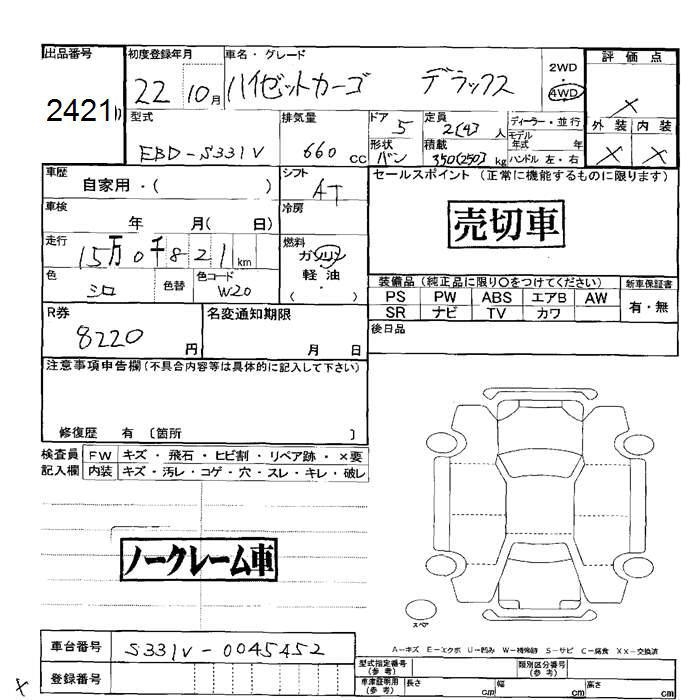 出品番号 2421
初度登録年月 22 10月
車名・グレード ハイゼットカーゴ デラックス
2WD ・ 4WD
評価点 ×
外装 内装
× ×
型式 EBD-S331V
排気量 660 cc
ドア 5
形状 バン
定員 2(4) 人
積載 350(250) kg
ディーラー・並行
モデル年式 年
ハンドル 左・右
車歴 自家用・( )
シフト AT
セールスポイント (正常に機能するものに限ります)
売切車
車検 年 月( 日)
冷房
走行 15万0千821 km
燃料 ガソリン
軽油
・
( )
色 シロ 色替 色コード W20
装備品 (純正品に限り○をつけてください)
新車保証書
PS PW ABS エアB AW
有・無
SR ナビ TV カワ
R券 8220 円
名変通知期限 月 日
後日品
注意事項申告欄(不具合内容等は具体的に記入して下さい)
修復歴 有 〔箇所 〕
検査員 FW キズ・飛石・ヒビ割・リペア跡・×要
記入欄 内装 キズ・汚レ・コゲ・穴・スレ・キレ・破レ
ノークレーム車
スペア
A-キズ E-エクボ U-凹み W-補修跡 S-サビ C-腐食 XX-交換済
車台番号 S331V-0045452
登録番号
型式指定番号(参考) 類別区分番号(参考)
車庫証明用(参考) 長さ cm 幅 cm 高さ cm
×